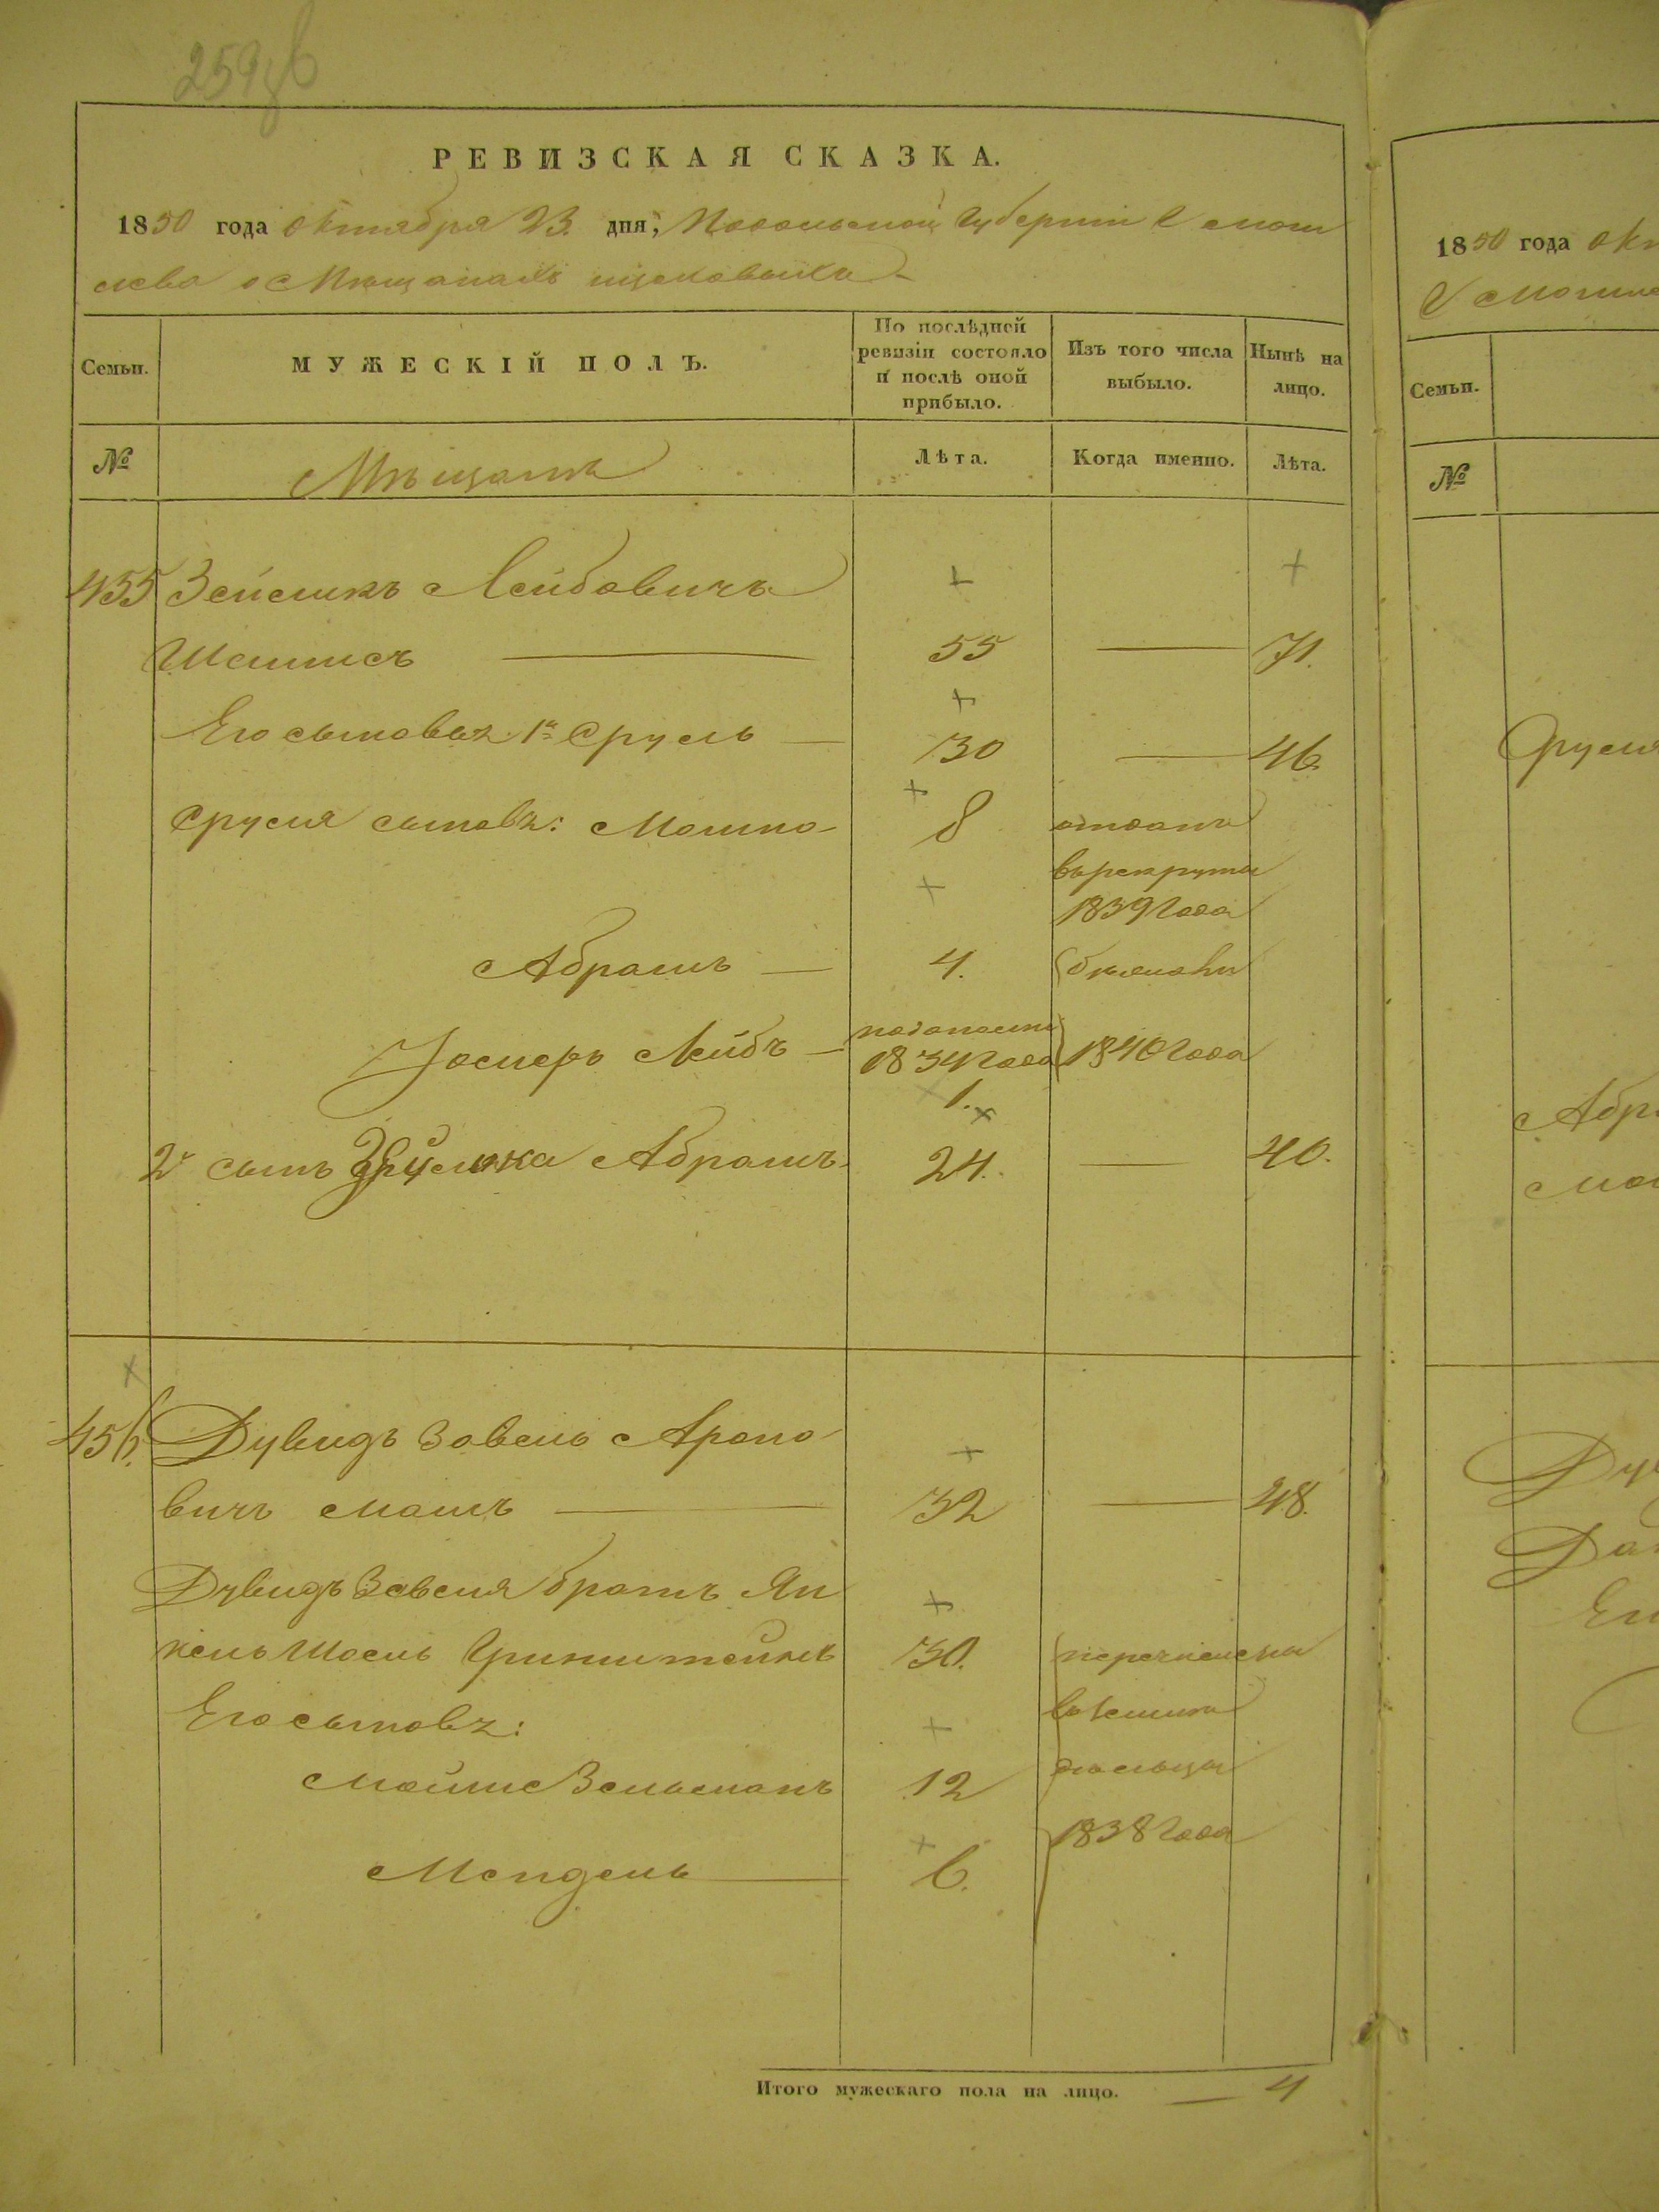 259
РЕВИЗСКАЯ СКАЗКА.
1850 года октября 23. дня, Подольской Губерніи г Моги
лева о Мѣщанахъ
Семьи.
МУЖЕСКІЙ ПОЛЪ.
По послѣдней ревизіи состояло и послѣ оной прибыло.
Изъ того числа выбыло.
Нынѣ на лицо.
№
Мѣщане
Лѣта.
Когда именно.
Лѣта.
455 Зейликъ Лейбовичъ
55 — 71.
Его сыновья 1й Сруль — 30 — 46.
Сруля сыновья: Мошко 8 отданъ
в рекруты
1839 года
Абрамъ — 4. бѣжавш
Іосиеръ Лейбъ — 1834 года 1840 года
1.
2й сынъ Зейлика Абрамъ 24. — 40.
456. Дувидъ Завель Ароно
вичъ 32 — 48.
Дувидъ Завеля братъ Ян
кель Шоель Гринштейнъ 30. перечислены
Его сыновья: в
Мойше Зельманъ 12
1838 года
Мендель — 6.
Итого мужескаго пола на лицо. — 4
1850 года окт
Моги
Семьи.
№
Сруля
Абра
Дув